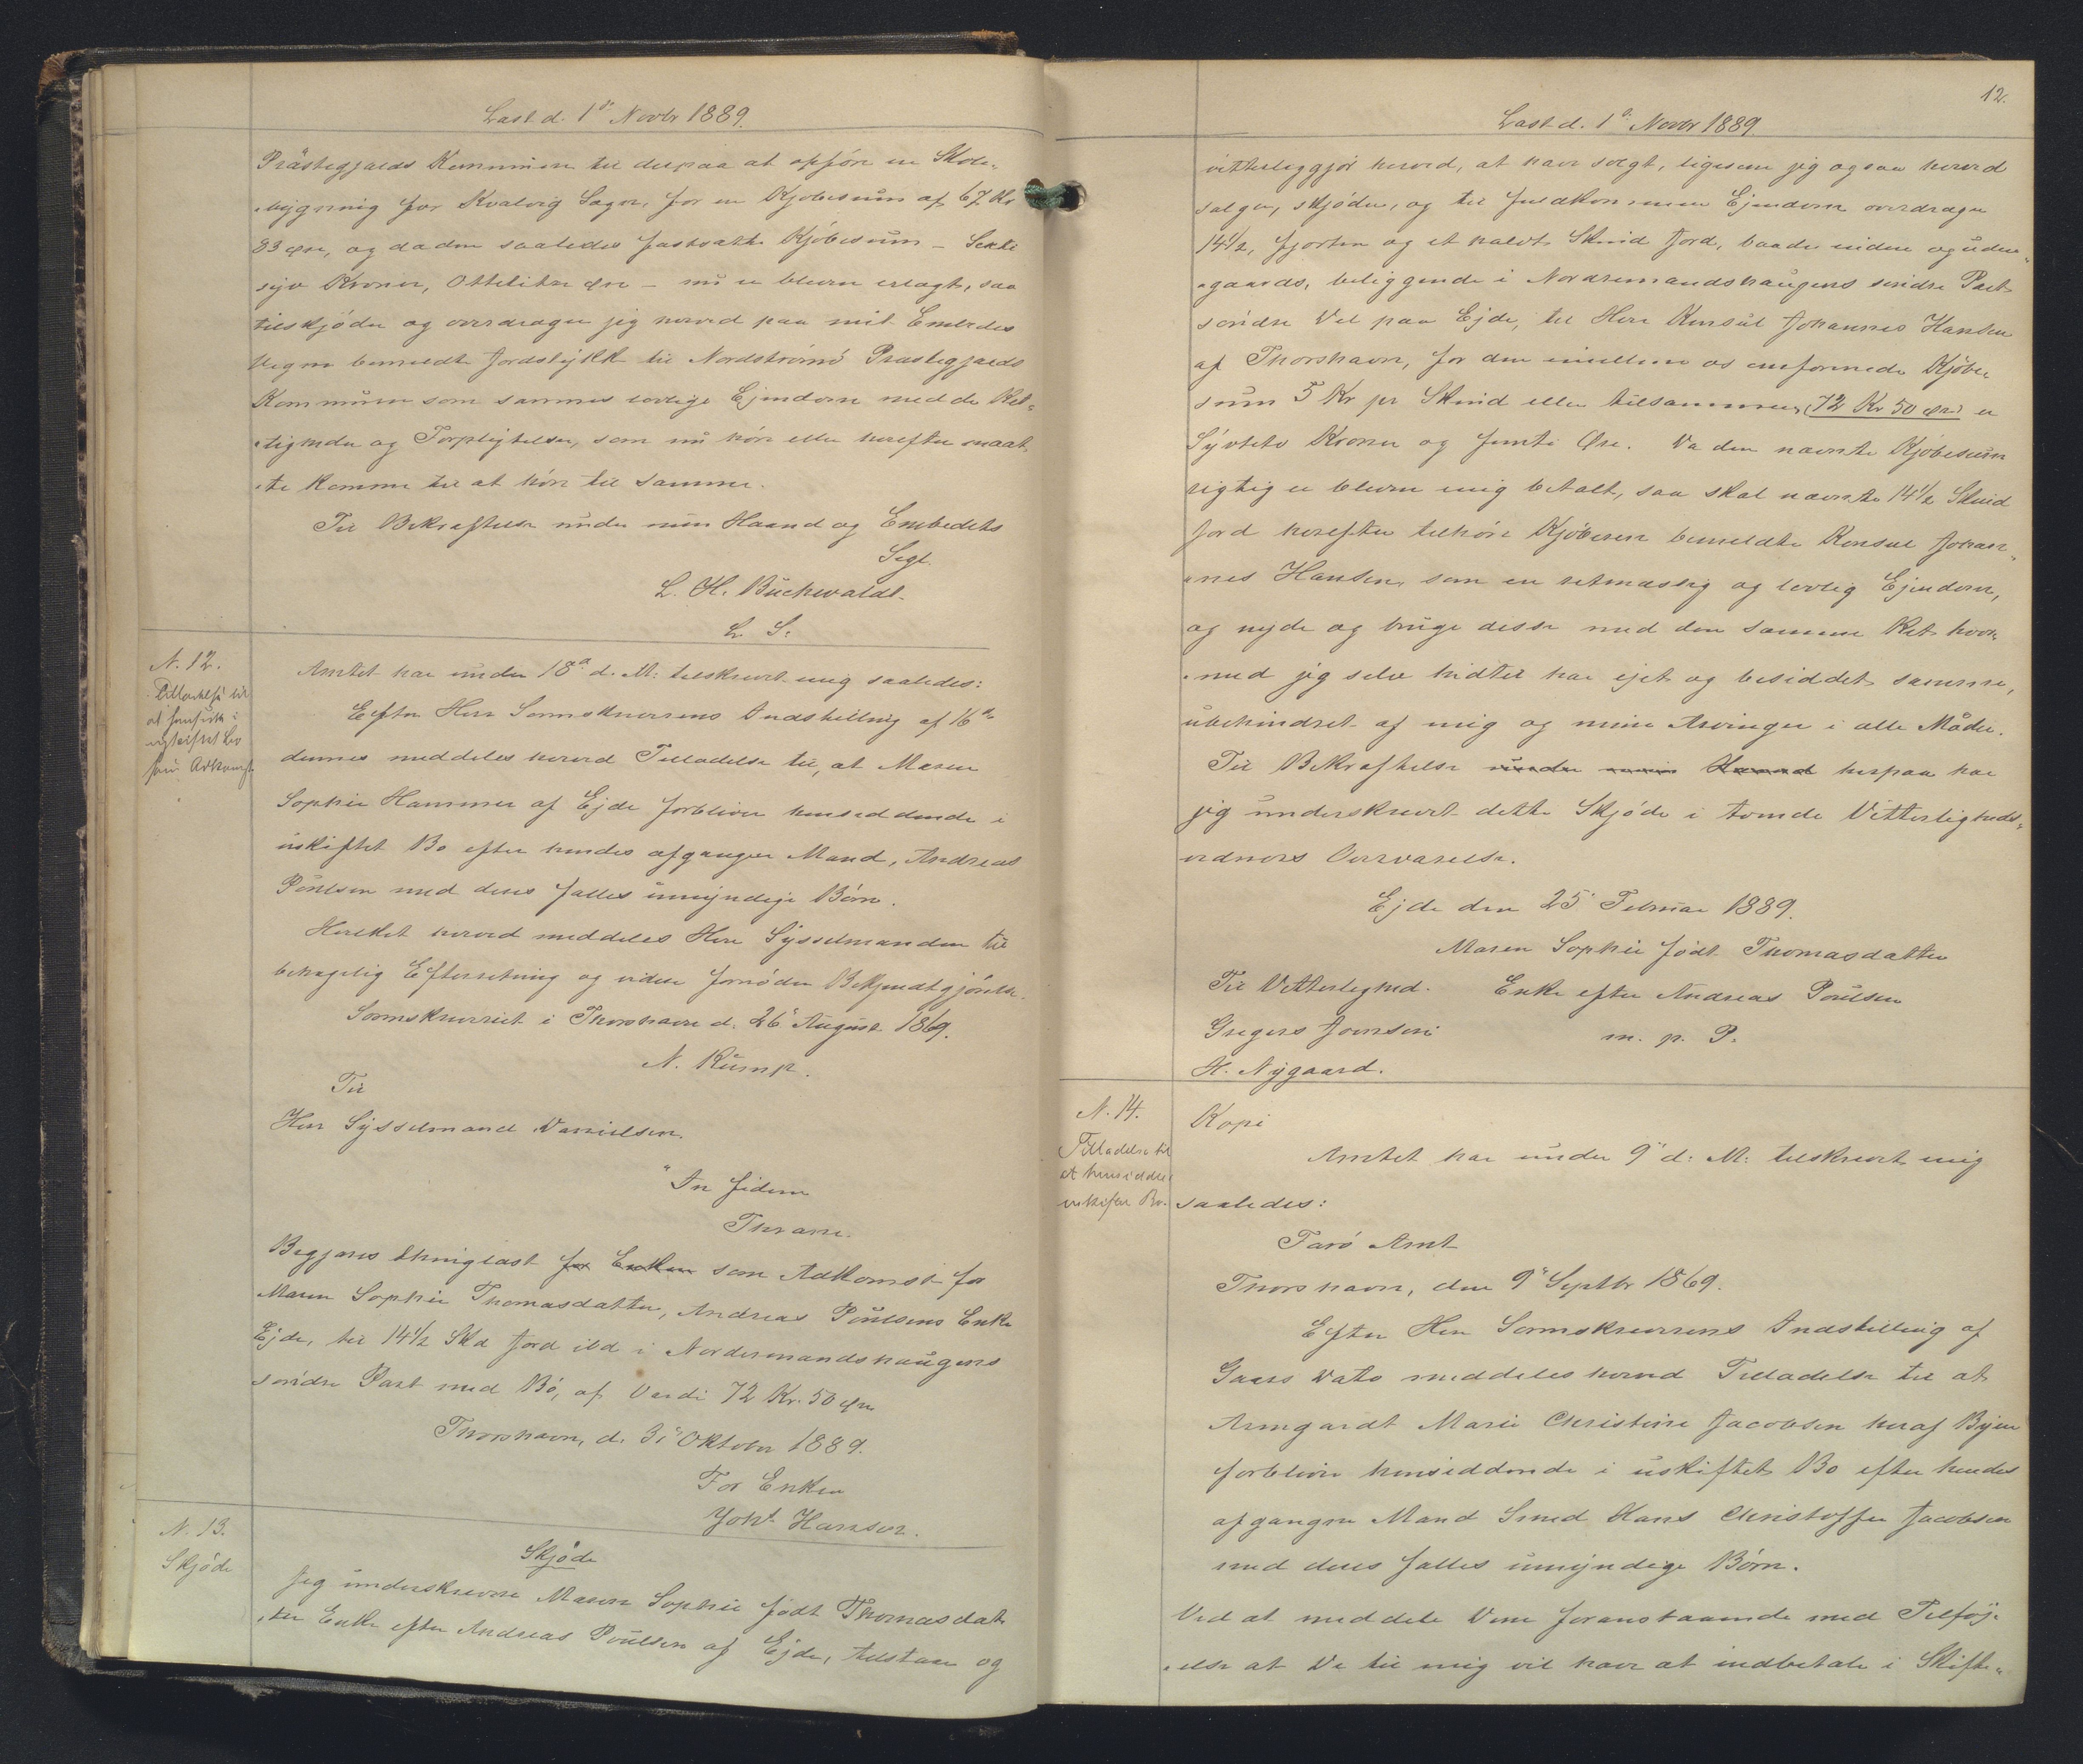 Læst d. 1ste Novbr 1889.
Præstegjælds Kommune til derpaa at opføre en Skole-
bygning for Kvalvig Sogn, for en Kjøbesum af 67 Kr
83 Øre, og da den saaledes fastsatte Kjøbesum - Seksti
syv Kroner, Ottetitre Øre - nu er bleven erlagt, saa
tilskjøder og overdrager jeg herved paa mit Embedes
Vegne bemeldte Jordstykke til Nordstrømø Præstegjælds
Kommune som sammes lovlige Ejendom med de Ret-
tigheder og Forpligtelser, som nu hører eller herefter maat-
te komme til at høre til samme.
Til Bekræftelse under min Haand og Embedets
Segl.
L. H. Buchwaldt.
L. S.
N. 12.
Tilladelse til
at hensidde i
uskiftet Bo
som Adkomst
Amtet har under 18de d. M. tilskrevet mig saaledes:
Efter Herr Sorenskriverens Indstilling af 16de
dennes meddeles herved Tilladelse til, at Maren
Sophie Hammer af Ejde forbliver hensiddende i
uskiftet Bo efter hendes afgangne Mand, Andreas
Poulsen med deres fælles umyndige Børn.
Hvilket herved meddeles Herr Sysselmanden til
behagelig Efterretning og videre fornøden Bekjendtgjørelse.
Sorenskriveriet i Thorshavn d. 26' August 1869.
N. Rump.
Til
Herr Sysselmand Danielsen.
In fidem
Thrane.
Begjæres thinglæst for Enken som Adkomst for
Maren Sophie Thomasdatter, Andreas Poulsens Enke
Ejde, til 14½ Skd Jord ibd i Nordremandshaugens
søndre Part med Bø, af Værdi 72 Kr. 50 Øre
Thorshavn, d. 31' Oktober 1889.
For Enken
Johs Hansen.
N. 13.
Skjøde
Skjøde
Jeg underskrevne Maren Sophie født Thomasdat-
ter Enke efter Andreas Poulsen af Ejde, tilstaar og
12.
Læst d. 1ste Novbr 1889
vitterliggjør herved, at have solgt, ligesom jeg ogsaa herved
sælger, skjøder, og til fuldkommen Ejendom overdrager
14½, fjorten og et halvt Skind Jord, baade inden og uden-
gaards, beliggende i Nordremandshaugens søndre Part
søndre Del paa Ejde, til Herr Konsul Johannes Hansen
af Thorshavn, for den imellem os omforenede Kjøbe-
sum 5 Kr pr Skind eller tilsammen (72 Kr 50 Øre) er
Syvtito Kroner og femti Øre. Da den nævnte Kjøbesum
rigtig er bleven mig betalt, saa skal nævnte 14½ Skind
Jord herefter tilhøre Kjøberen bemeldte Konsul Johan-
nes Hansen, som en retmæssig og lovlig Ejendom,
og nyde og bruge disse med den samme Ret hvor-
med jeg selv hidtil har ejet og besiddet samme,
ubehindret af mig og mine Arvinger i alle Måder.
Til Bekræftelse under min Haand herpaa har
jeg underskrevet dette Skjøde i tvende Vitterligheds-
vidners Overværelse.
Ejde den 25' Februar 1889.
Maren Sophie født Thomasdatter
Til Vitterlighed. Enke efter Andreas Poulsen
Gregers Joensen m. p. P.
H. Nygaard.
N. 14.
Tilladelse til
at hensidde i
uskiftet Bo.
Kopi
Amtet har under 9' d. M. tilskrevet mig
saaledes:
Færø Amt
Thorshavn, den 9' Septbr 1869.
Efter Herr Sorenskriverens Indstilling af
Gaars Dato meddeles herved Tilladelse til at
Armgardt Marie Christine Jacobsen heraf Byen
forbliver hensiddende i uskiftet Bo efter hendes
afgangne Mand Smed Hans Christoffer Jacobsen
med deres fælles umyndige Børn.
Ved at meddele Dem foranstaaende med Tilføj-
else at De til mig vil have at indbetale i Skifte-